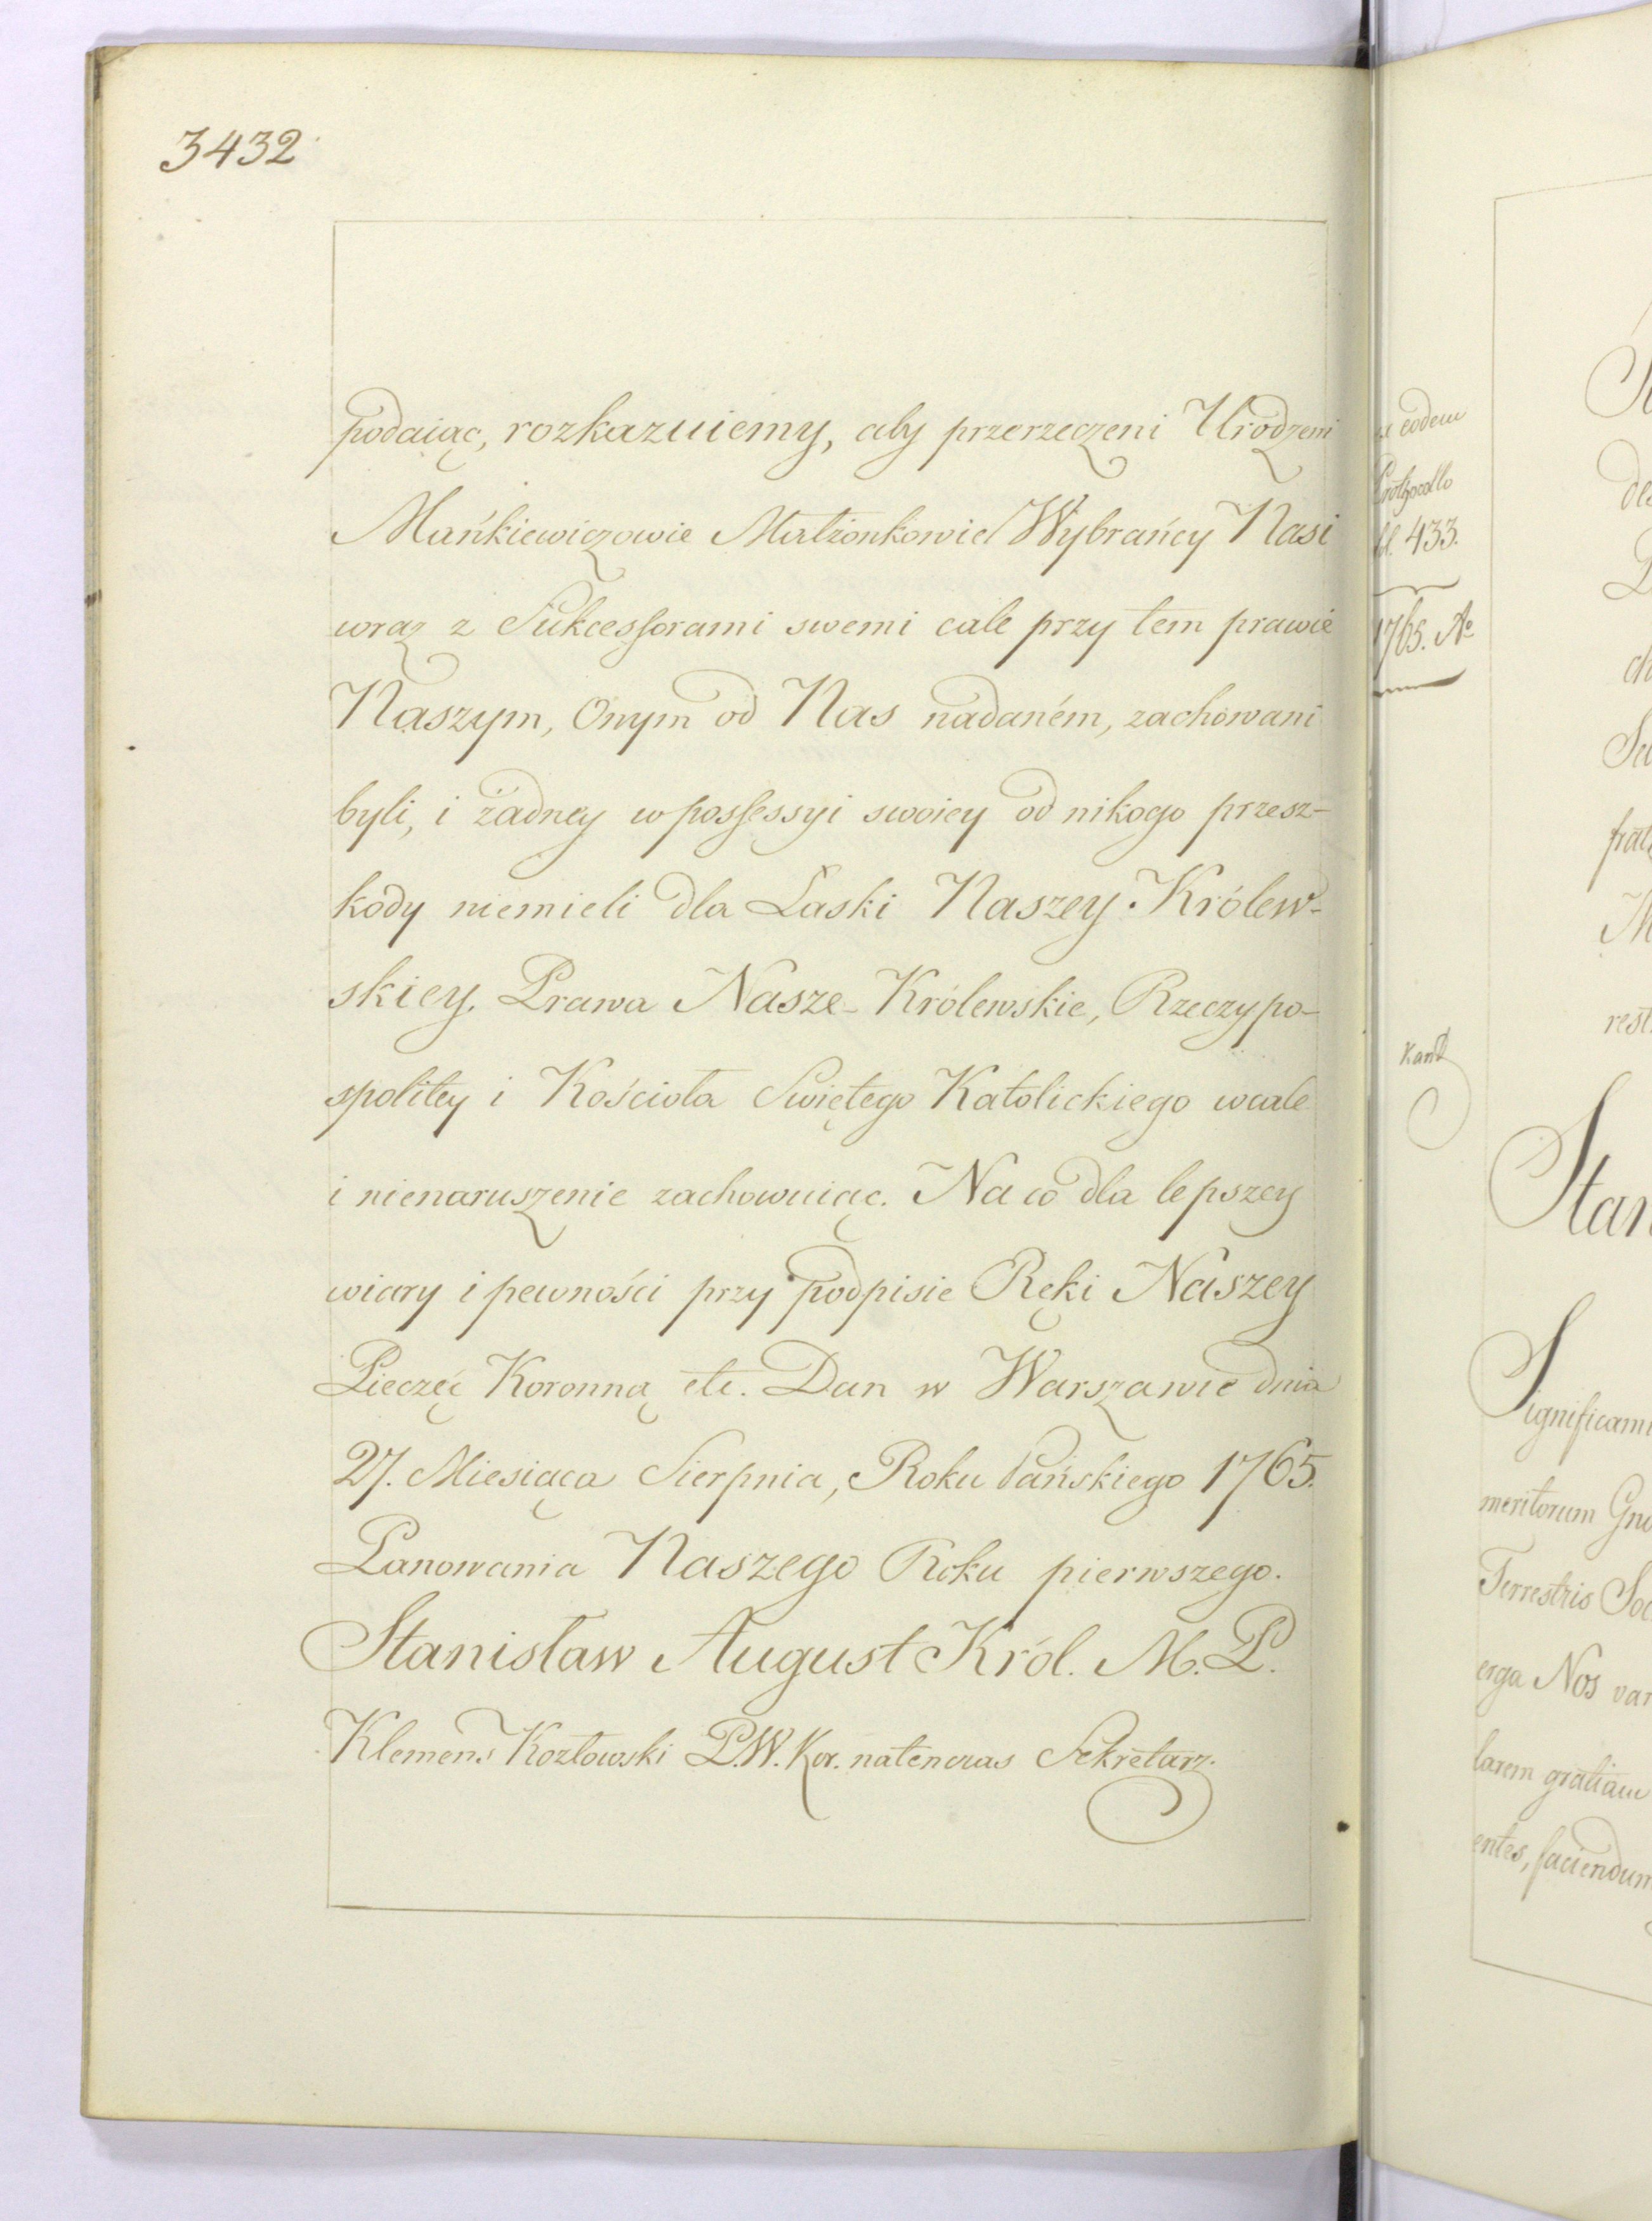 3432
podaiąc, rozkazuiemy, aby przerzeczeni Urodzeni
Mańkiewiczowie Małżonkowie Wybrańcy Nasi
wraz z Sukcessorami swemi cale przy tem prawie
Naszym, Onym od Nas nadaném, zachowani
byli, i żadney w possessyi swoiey od nikogo przesz-
kody niemieli dla Łaski Naszey Królew-
skiey. Prawa Nasze Królewskie, Rzeczypo-
spolitey i Kościoła Swiętego Katolickiego wcale
i nienaruszenie zachowuiąc. Na co dla lepszey
wiary i pewności przy podpisie Ręki Naszey
Pieczęć Koronną etc. Dan w Warszawie dnia
27. Miesiąca Sierpnia, Roku Pańskiego 1765.
Panowania Naszego Roku pierwszego.
Stanisław August Król. M. P.
Klemens Kozłowski P.W. Kor. natenczas Sekretarz.
eodem
Prothocollo
fol. 433.
1765. Aº
Kand
Stan
Significam
meritorum Gn
Terrestris Soc
erga Nos var
larem gratiam
entes, faciendum